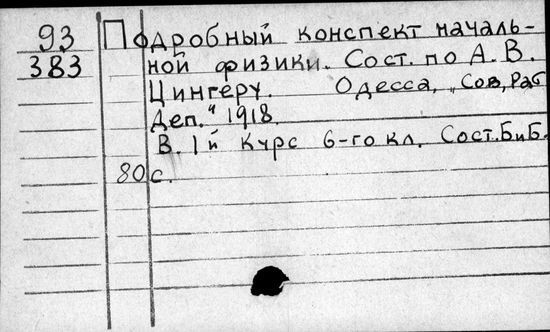 93 Подробный конспект началь-
383 ной физики. Сост. по А. В.
Цингеру. Одесса, „Сов. Раб.
Деп.“ 1918.
В. 1й Курс 6-го кл. Сост. Б и Б.
80 с.